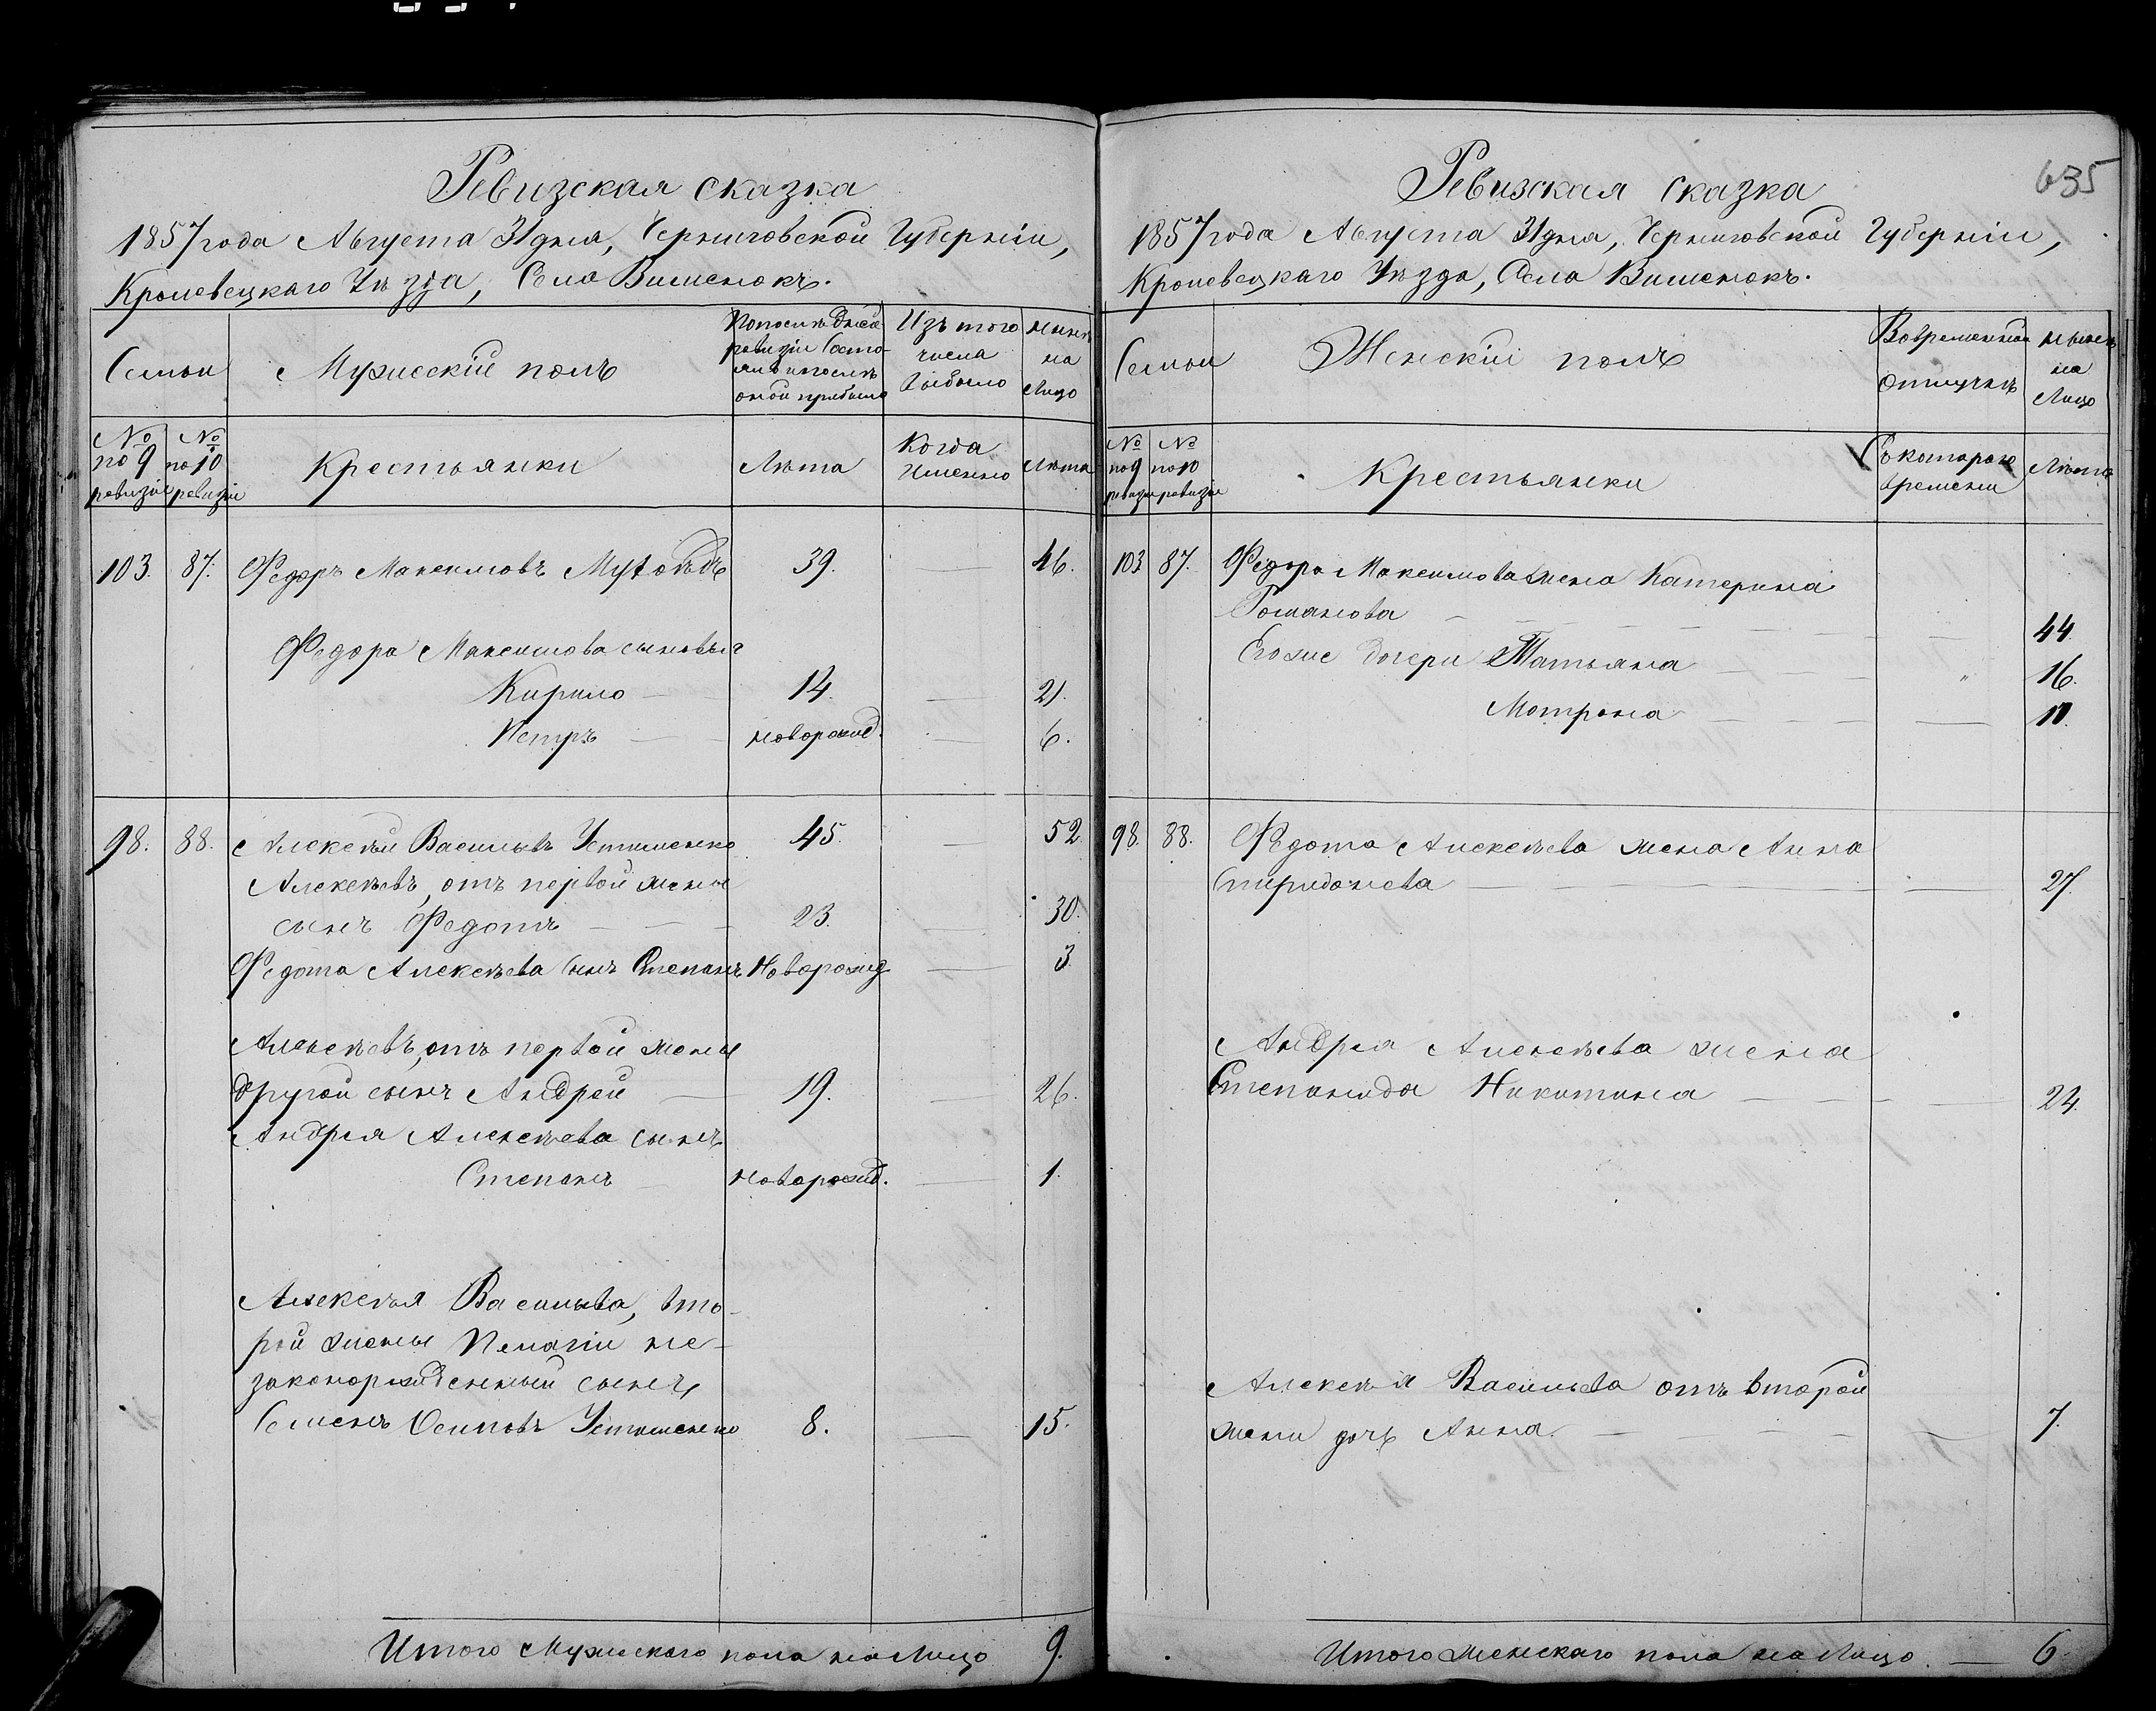 Ревизская сказка
1857 года Августа 31 дня, Черниговской Губерніи,
Кролевецкаго Уѣзда, Села Вишенокъ.
Семьи
Мужескій полъ
По послѣдней
ревизіи состо-
яло и послѣ
оной прибыло
Изъ того
числа
выбыло
Нынѣ
на
Лицо
№
по 9
ревизіи
№
по 10
ревизіи
Крестьянки
Лѣта
Когда
именно
Лѣта
103. 87. Федоръ Максимовъ 39. — 46.
Федора Максимова сыновья
Кирило — 14. — 21.
Петръ — новорожд. — 6.
98. 88. Алексѣй Васильевъ Устименко 45. — 52
Алексѣевъ, отъ первой жены
сынъ Федотъ — 23. — 30.
Федота Алексѣева сынъ Степанъ Новорожд — 3.
Алексѣевъ, отъ первой жены
другой сынъ Андрей — 19. — 26.
Андрея Алексѣева сынъ
Степанъ — новорожд. — 1.
Алексѣя Васильева, вто-
рой жены Пелагіи не-
законорожденный сынъ,
Семенъ Осиповъ Устименко 8. — 15.
Итого Мужескаго пола на Лицо 9.
635
Ревизская сказка
1857 года Августа 31 дня, Черниговской Губерніи,
Кролевецкаго Уѣзда, Села Вишенокъ.
Семьи
Женскій полъ
Во временной
отлучкѣ
Нынѣ
на
Лицо
№
по 9
ревизіи
№
по 10
ревизіи
Крестьянки
Съ котораго
времени
Лѣта
103 87. Федора Максимова жена Катерина
Романова — — 44.
Его же дочери Татьяна — " 16.
Мотрона — — 11.
98. 88. Федота Алексѣева жена Анна
Спиридонева — — 27.
Андрея Алексѣева жена
Степанида Никитина — — 24.
Алексѣя Васильева отъ второй
жены дочь Анна — — 7.
Итого женскаго пола на Лицо — 6